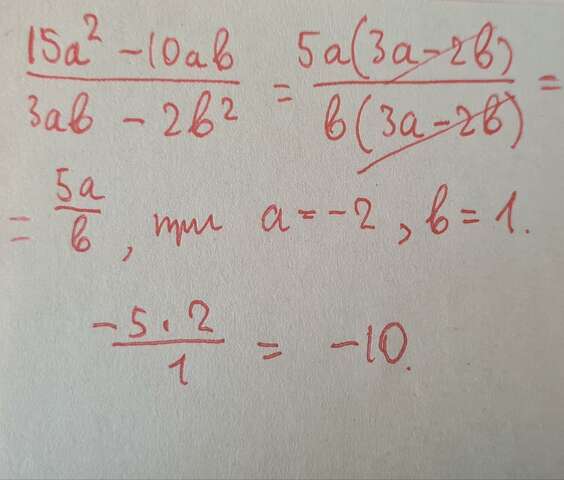 (15a² - 10ab)/(3ab - 2b²) = 5a(3a - 2b)/b(3a - 2b) =
= 5a/b, при a = -2, b = 1.
(-5 · 2)/1 = -10.